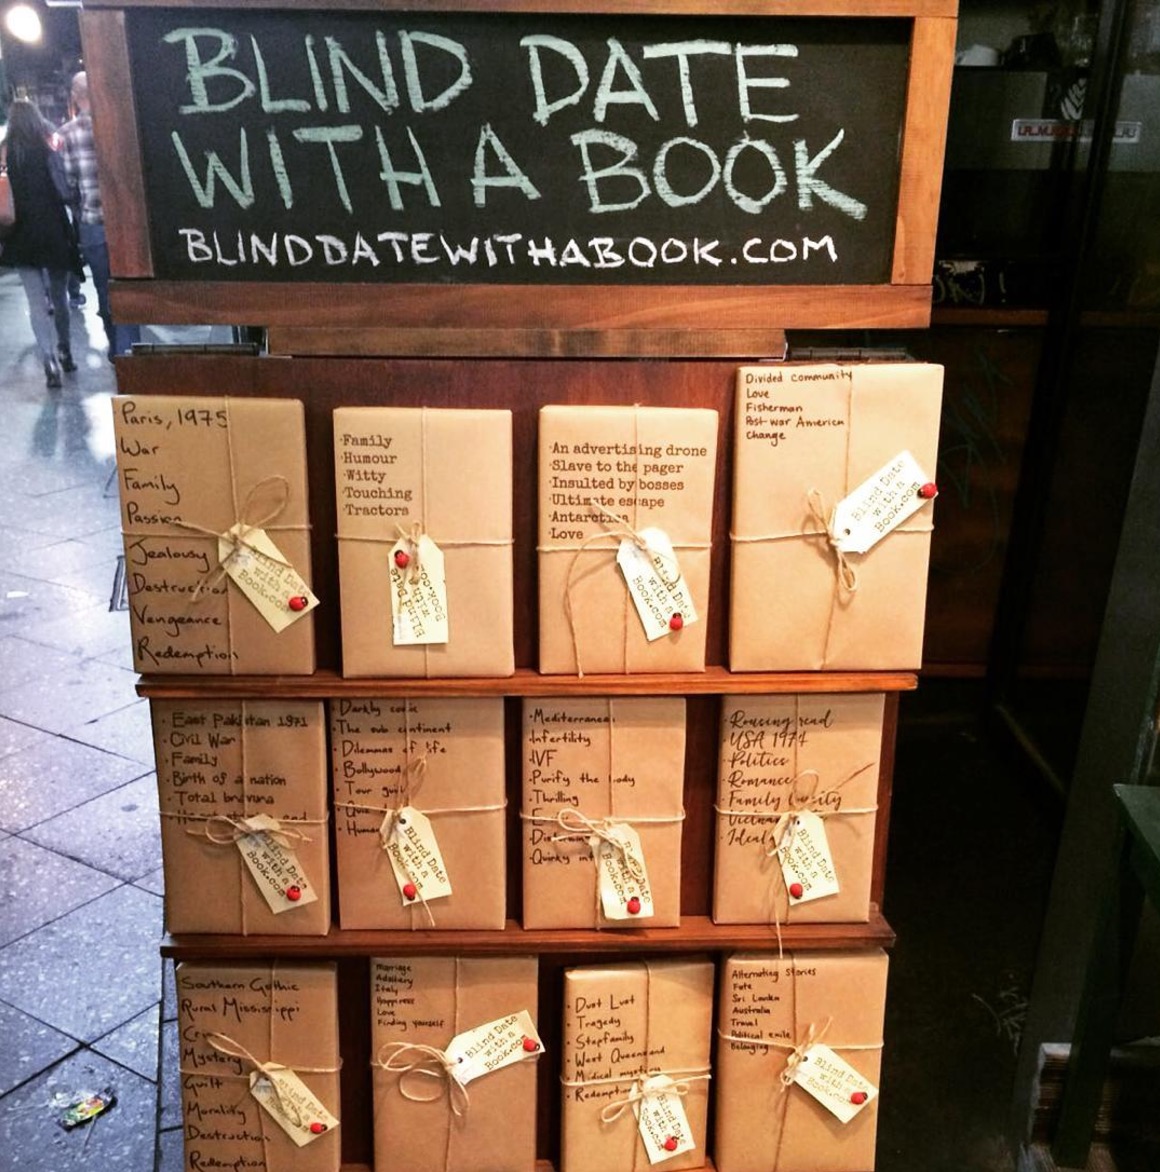 BLIND DATE
WITH A BOOK
BLINDDATEWITHABOOK.COM
Paris, 1975
War
Family
Passion
Jealousy
Destruction
Vengeance
Redemption
Blind Date
with a
Book.com
·Family
·Humour
·Witty
·Touching
·Tractors
Blind Date
with a
Book.com
·An advertising drone
·Slave to the pager
·Insulted by bosses
·Ultimate escape
·Antarctica
·Love
Blind Date
with a
Book.com
Divided community
Love
Fisherman
Post-war America
Change
Blind Date
with a
Book.com
· East Pakistan 1971
· Civil War
· Family
· Birth of a nation
· Total
Blind Date
with a
Book.com
· Darkly comic
· The sub continent
· Dilemmas of life
· Bollywood
· Tour
Blind Date
with a
Book.com
·Mediterranean
·Infertility
·IVF
·Purify the body
·Thrilling
·Quirky
Blind Date
with a
Book.com
· Rousing read
· USA 1974
· Politics
· Romance
· Family
· Vietnam
Blind Date
with a
Book.com
Southern Gothic
Rural Mississippi
Mystery
Guilt
Morality
Destruction
Redemption
Blind Date
with a
Book.com
Marriage
Adultery
Italy
Happiness
Love
Finding yourself
Blind Date
with a
Book.com
· Dust Lust
· Tragedy
· Stepfamily
· West Queensland
· Medical mystery
· Redemption
Blind Date
with a
Book.com
Alternating Stories
Fate
Sri Lanka
Australia
Travel
Political exile
Belonging
Blind Date
with a
Book.com